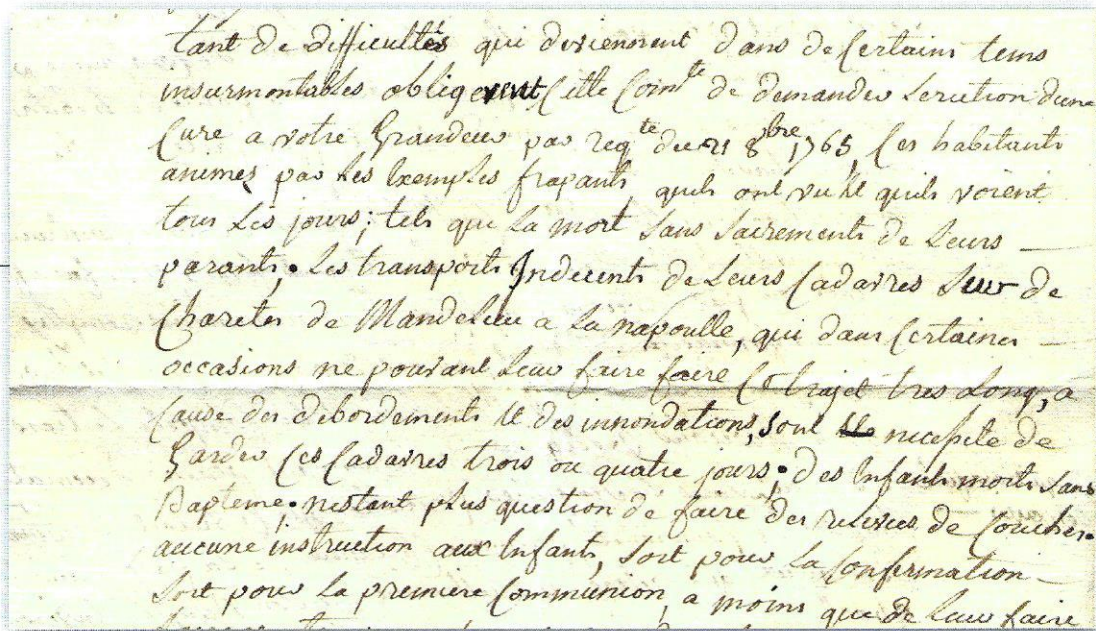 tant de difficultés qui deviennent dans de Certains tems
insurmontables obligerent Cette Com.te de demander Lerection dune
Cure a votre Grandeur par reqte du 21 8bre 1765, Les habitants
animes par Les Exemples frapants quils ont vu et quils voient
tous Les jours; tels que La mort Sans Sacrements de Leurs
parants, Les transports Indecents de Leurs Cadavres Sur de
Charetes de Mandelieu a La napoulle, qui dans Certaines
occasions ne pouvant Leur faire faire Ce trajet tres Long, a
Cause des debordements et des innondations, sont necessite de
Garder Ces Cadavres trois ou quatre jours; des Enfants morts Sans
Bapteme. nestant plus question de faire des de Couches.
aucune instruction aux Enfants, soit pour La Confirmation
Soit pour La premiere Communion, a moins que de Leur faire